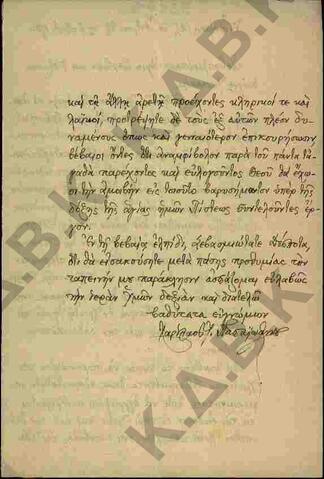 καὶ τῇ ἄλλῃ ἀρετῇ προέχοντες κληρικοί τε καὶ
λαϊκοί, προτρέψητε δὲ τοὺς ἐξ αὐτῶν πλέον δυ-
ναμένους ὅπως καὶ γενναιότερον ἐπικουρήσωσιν
βέβαιοι ὄντες ὅτι ἀναμφίβολον παρὰ τοῦ πάντα τἀ-
γαθὰ παρέχοντος καὶ εὐλογοῦντος Θεοῦ θὰ ἔχω-
σι τὴν ἀμοιβὴν εἰς τοσοῦτο βαρυσήμαντον ὑπὲρ τῆς
δόξης τῆς ἁγίας ἡμῶν Πίστεως συντελοῦντες ἔρ-
γον.
Ἐν τῇ βεβαίᾳ ἐλπίδι, σεβασμιώτατε Δέσποτα,
ὅτι θὰ εἰσακούσητε μετὰ πάσης προθυμίας τὴν
ταπεινήν μου παράκλησιν ἀσπάζομαι εὐλαβῶς
τὴν ἱερὰν Ὑμῶν δεξιὰν καὶ διατελῶ
βαθύτατα εὐγνώμων
Κ.Δ.Β.Κ
Κ.Δ.Β.Κ
Κ.Δ.Β.Κ